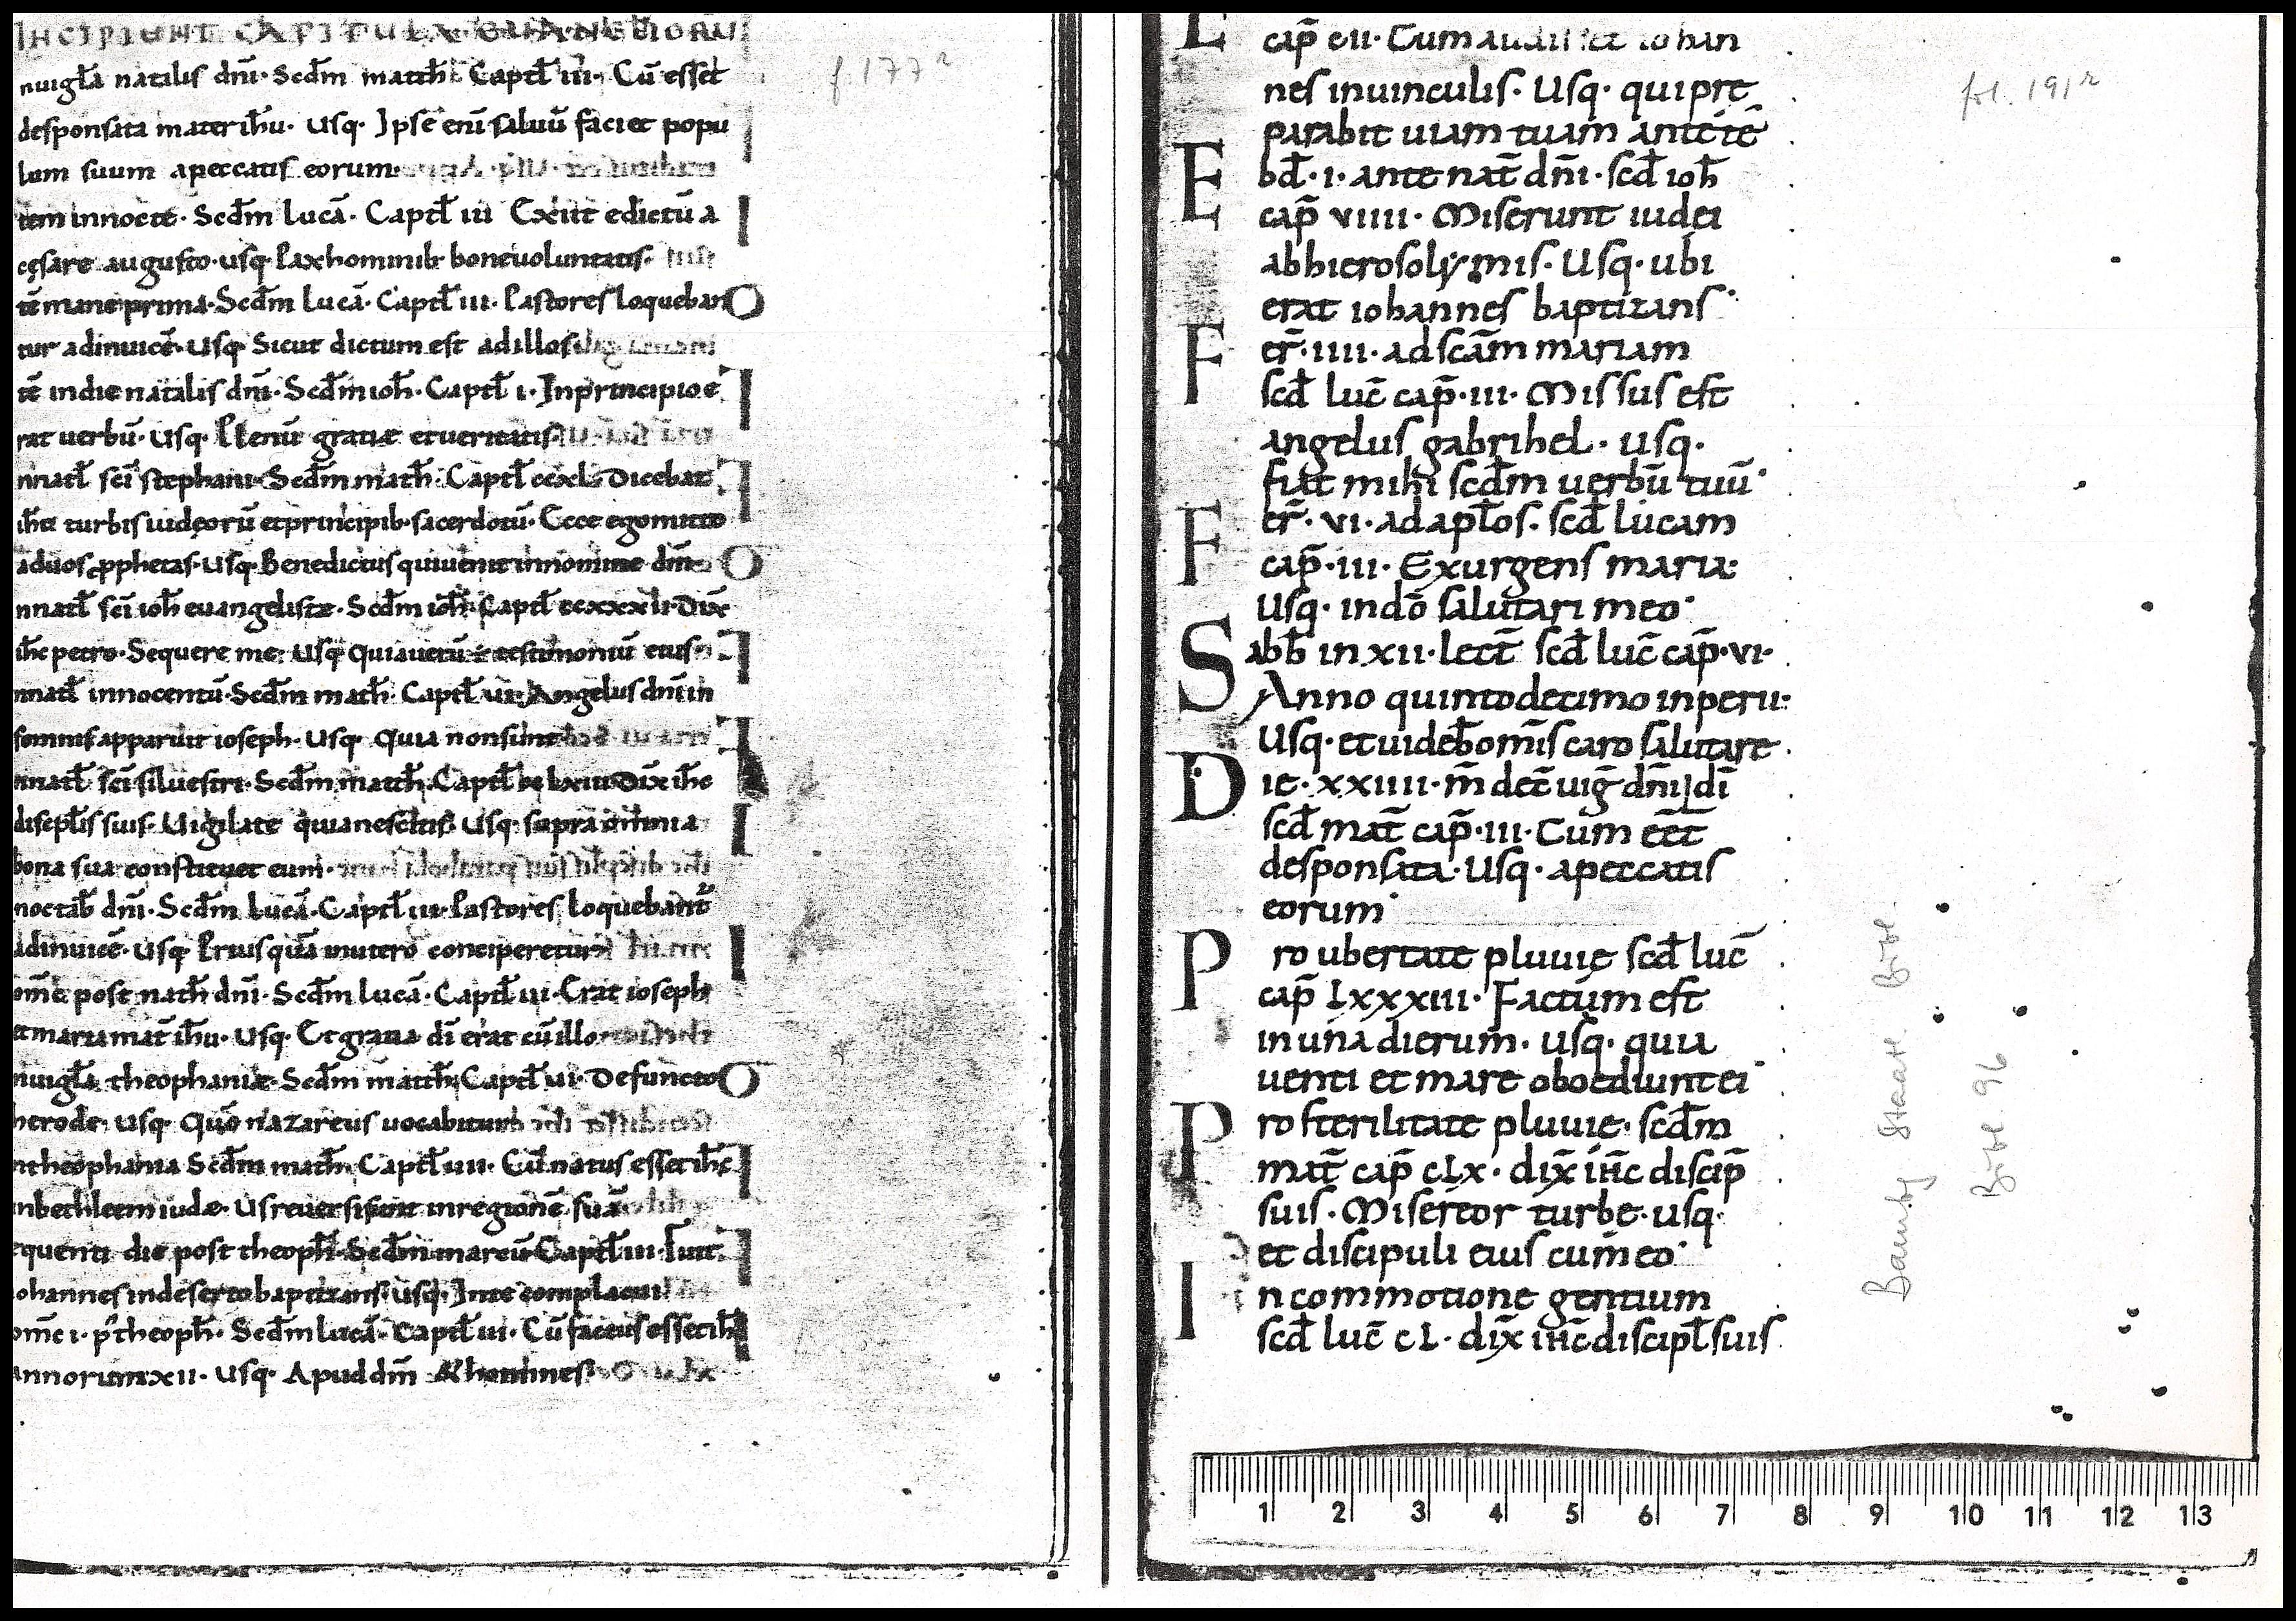 INCIPIUNT CAPITULA EUANGELIORU
f 177 r
nuigl̄a natalis dn̄i· Scd̄m matth̄· Captl̄ iii· Cū esset
desponsata mater ih̄u· Usq· Ipse eni saluū faciet popu
lum suum apeccatis eorum·
tem innocte· Scd̄m lucā· Captl̄ iii Exiit edictū a
cęsare augusto· usq· Pax hominib· bonę uoluntatis·
tē mane prima· Scd̄m lucā· Captl̄ iii· Pastores loqueban
tur adinuicē· Usq· Sicut dictum est adillos
tē indie natalis dn̄i· Scd̄m ioh̄· Captl̄ i· Inprincipio e
rat uerbū· Usq· Plenū gratiæ et ueritatis·
nnatl̄ sc̄i stephani· Scd̄m math̄· Captl̄ ccxl· Dicebat
ih̄c turbis iudęorū et principib· sacerdotū· Ecce ego mitto
aduos pphetas· Usq· Benedictus qui uenit in nomine dn̄i·
nnatl̄ sc̄i ioh̄ euangelistæ· Scd̄m ioh̄· Captl̄ Dix̄
ih̄c petro· Sequere me· Usq· Quia uerū ÷ testimoniū eius·
nnatl̄ innocentū· Scd̄m math̄· Captl̄ ui· Angelus dn̄i in
somnis apparuit ioseph· Usq· Quia non sunt
nnatl̄ sc̄i siluestri· Scd̄m matth̄· Captl̄ Dix̄ ih̄c
discipl̄is suis· Uigilate quia nescitis· Usq· supra omnia
bona sua constituet eum·
noctab̄ dn̄i· Scd̄m lucā· Captl̄ iii· Pastores loquebant̄
adinuicē· Usq· Priusquā inutero conciperetur·
om̄c post nath̄ dn̄i· Scd̄m lucā· Captl̄ iii· Erat ioseph
et maria mat̄ ih̄u· Usq· Et gratia dī erat cū illo·
nuigl̄a theophaniæ· Scd̄m matth̄· Captl̄ ui· Defuncto
herode· Usq· Quō nazareus uocabitur
ntheophania Scd̄m math̄· Captl̄ iiii· Cū natus esset ih̄c
inbethleem iudæ· Us reuersi sunt in regionē suā
equenti die post theoph̄· Scd̄m marcū· Captl̄ iii· Fuit
iohannes in deserto baptizans· usq· In te complacui
om̄c i· p̄ theoph̄· Scd̄m lucā· Captl̄ ui· Cū factus esset ih̄c
annorum xii· Usq· Apud dm̄ & homines·
fol. 191 r
cap̄ cii· Cum audisset iohan
nes inuinculis· Usq· qui pre
parabit uiam tuam ante tē
Ebd̄· i· ante nat̄ dn̄i· scd̄ ioh̄
cap̄ viiii· Miserunt iudei
abhierosolymis· Usq· ubi
erat iohannes baptizans·
Fer̄· iiii· ad scām mariam
scd̄ luc̄ cap̄· iii· Missus est
angelus gabrihel· usq·
fiat mihi scd̄m uerbū tuū·
Fer̄· vi· ad apl̄os· scd̄ lucam
cap̄· iii· Exurgens maria·
Usq· in dō salutari meo·
Sabb̄ in xii· lect̄ scd̄ luc̄ cap̄· vi·
Anno quintodecimo inperii·
Usq· et uideb̄ om̄is caro salutare·
Die· xxiiii· m̄ dec̄ uiḡ dn̄i dī
scd̄ mat̄ cap̄· iii· Cum eēt
desponsata· Usq· apeccatis
eorum·
Pro ubertate pluuię scd̄ luc̄
cap̄ Lxxxiii· Factum est
in una dierum· usq· quia
uenti et mare oboediunt ei·
Pro sterilitate pluuię· scd̄m
mat̄ cap̄ cLx· dix̄ ih̄c discip̄
suis· Misereor turbę· usq·
et discipuli eius cum eo·
In commotione gentium
scd̄ luc̄ cL· dix̄ ih̄c discipl̄ suis·
Bamby Staatl Bibl.
Bibl 96
1 2 3 4 5 6 7 8 9 10 11 12 13